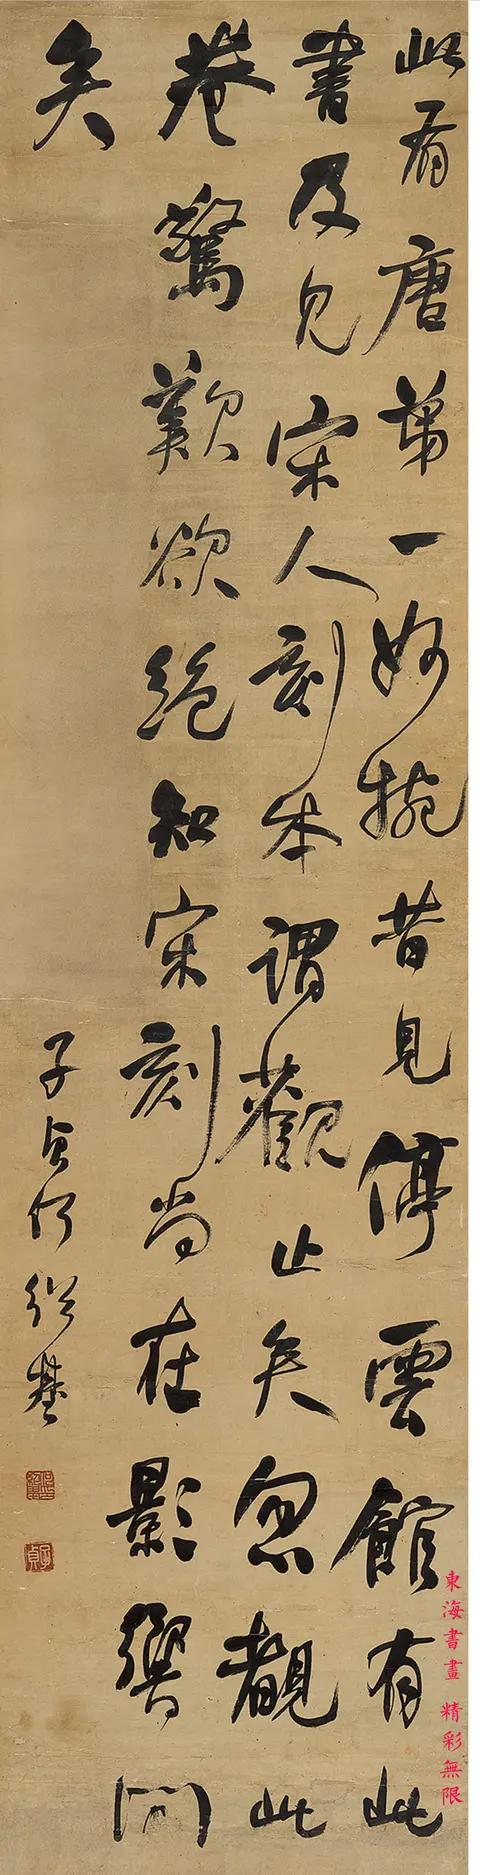 此有唐第一妙捥昔見停雲館有此
書及見宋人刻本謂觀止矣忽覩此
卷驚歎欲絶知宋刻尚在影響間
矣
子貞何紹基
子貞
東海書畫 精彩無限